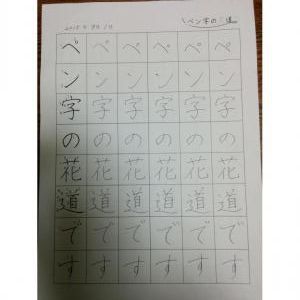 ペン字の 道
ペン字の花道です
ペン字の花道です
ペン字の花道です
ペン字の花道です
ペン字の花道です
ペン字の花道です